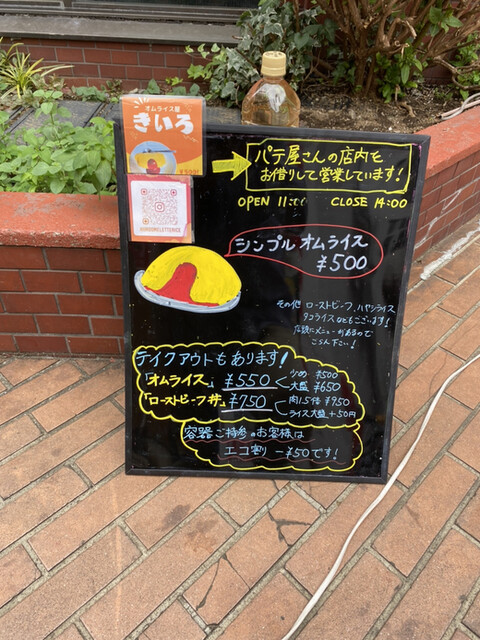 オムライス屋
きいろ
パテ屋さんの店内を
お借りして営業しています!
OPEN 11:00 CLOSE 14:00
シンプルオムライス
¥500
その他 ローストビーフ、ハヤシライス
タコライスなどもございます!
店頭にメニューがあるので
ごらん下さい!
テイクアウトもあります!
「オムライス」 ¥550
少なめ ¥500
大盛 ¥650
「ローストビーフ丼」 ¥750
肉1.5倍 ¥950
ライス大盛 +50円
容器ご持参のお客様は
エコ割り -¥50です!